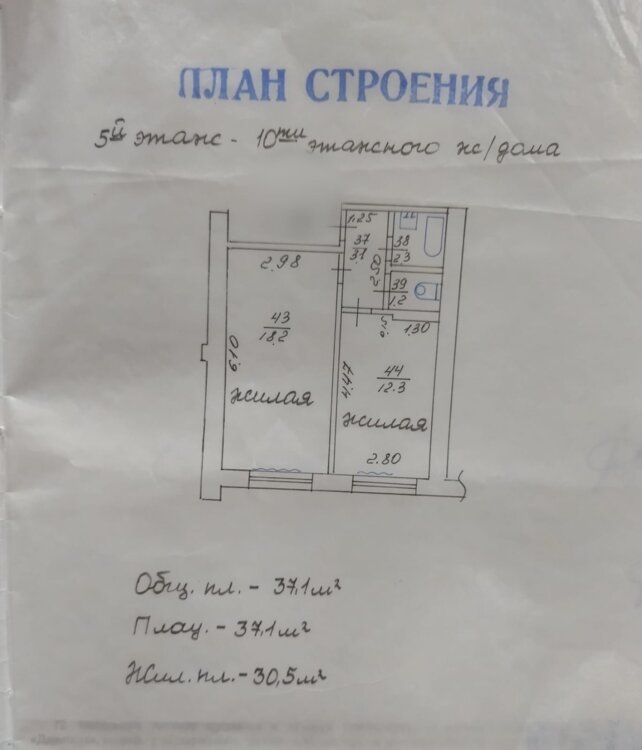 ПЛАН СТРОЕНИЯ
5й этаж - 10ти этажного ж/дома
1.25
37
3.1
38
2.3
39
1.2
2.98
43
18.2
6.10
жилая
1.30
44
12.3
4.44
жилая
2.80
Общ. пл. - 37,1 м²
Площ. - 37,1 м²
Жил. пл. - 30,5 м²